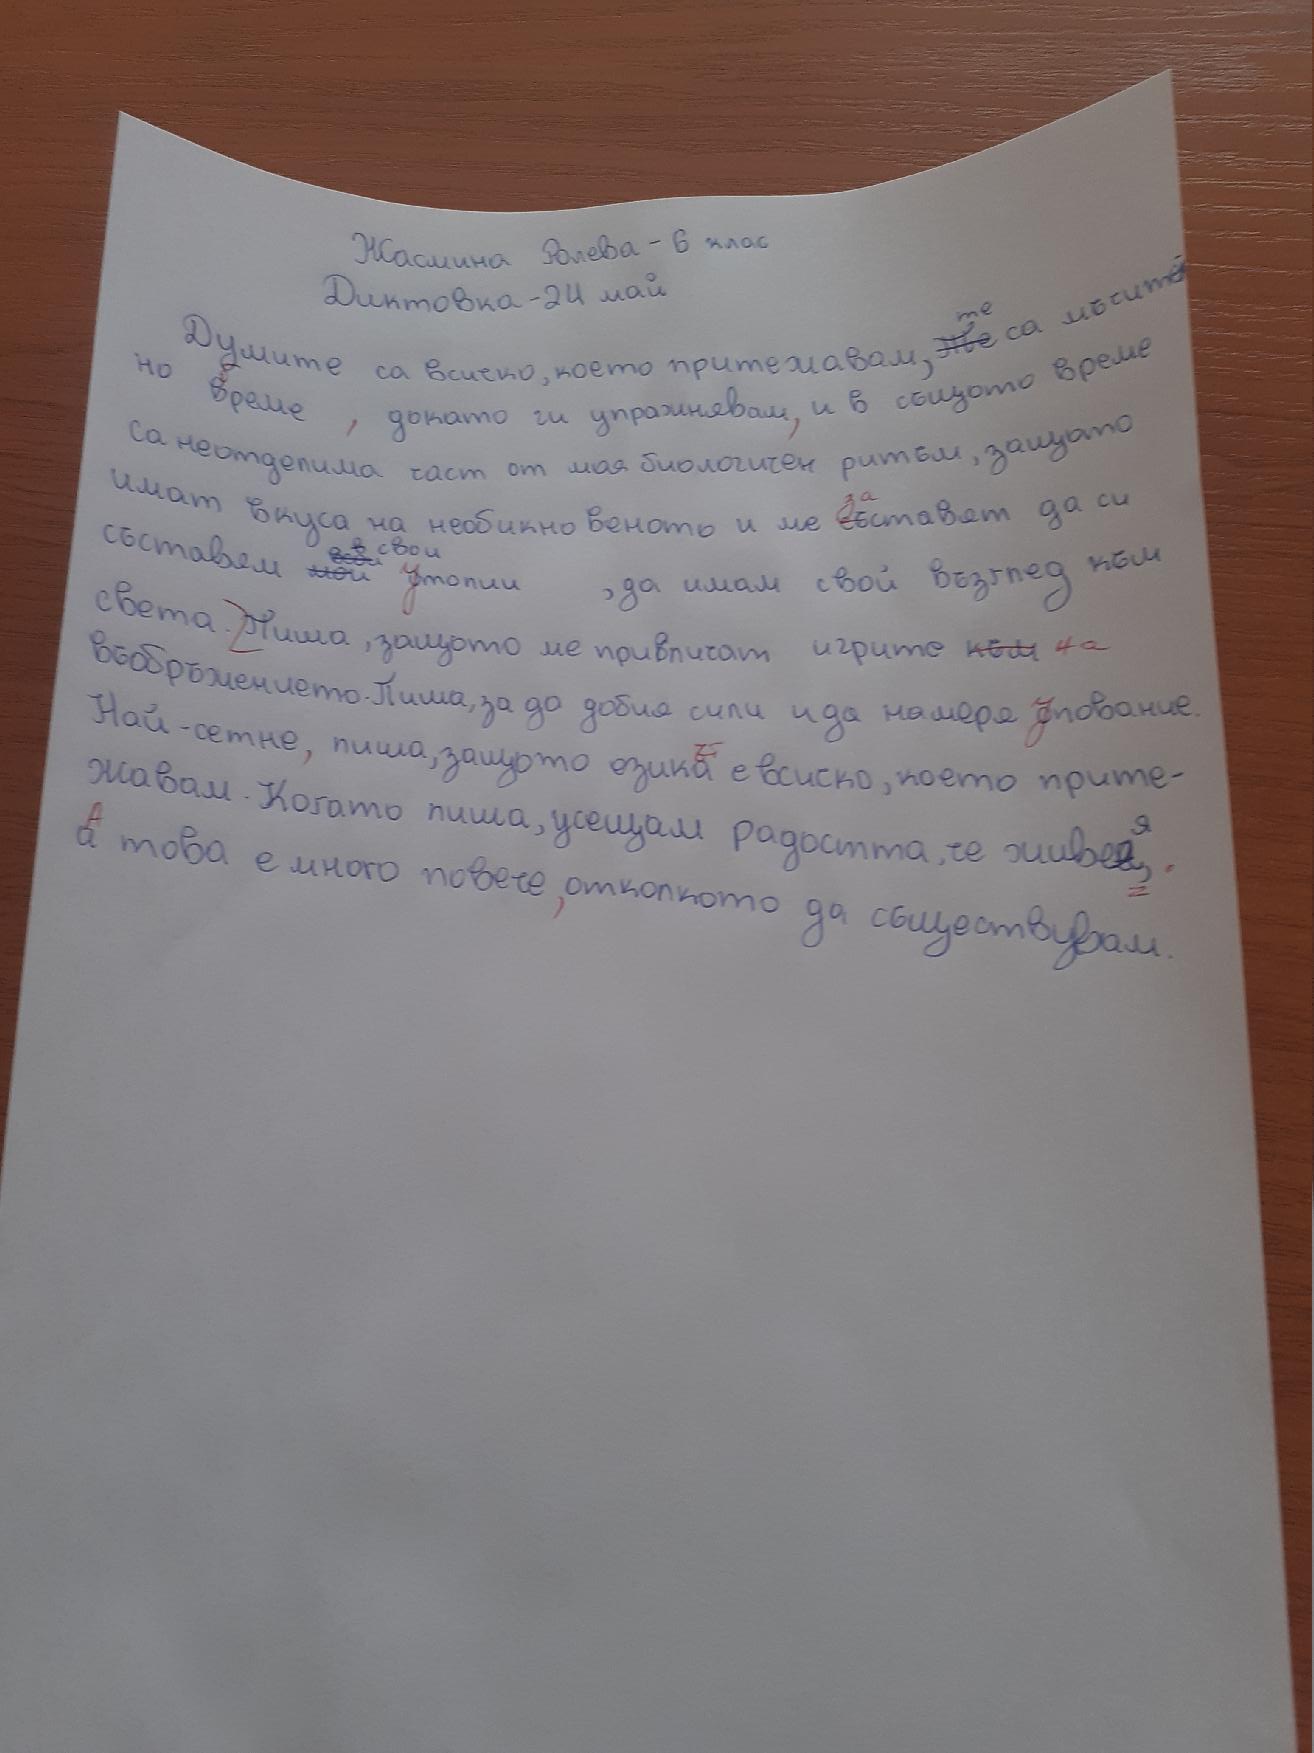 Жасмина Ролева - 6 клас
Диктовка - 24 май
Думите са всичко, което притежавам, те са мъчител
но време, докато ги упражнявам, и в същото време
са неотделима част от моя биологичен ритъм, защото
имат вкуса на необикновеното и ме заставят да си
съставям свои утопии, да имам свой възглед към
света. Пиша, защото ме привличат игрите на
въображението. Пиша, за да добия сили и да намеря упование.
Най-сетне, пиша, защото езикът е всичко, което прите-
жавам. Когато пиша, усещам радостта, че живея.
А това е много повече, отколкото да съществувам.